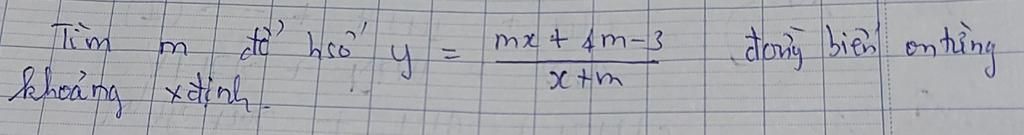 Tìm m để hsố y = \frac{mx + 4m - 3}{x + m} đồng biến on từng
khoảng xđịnh.